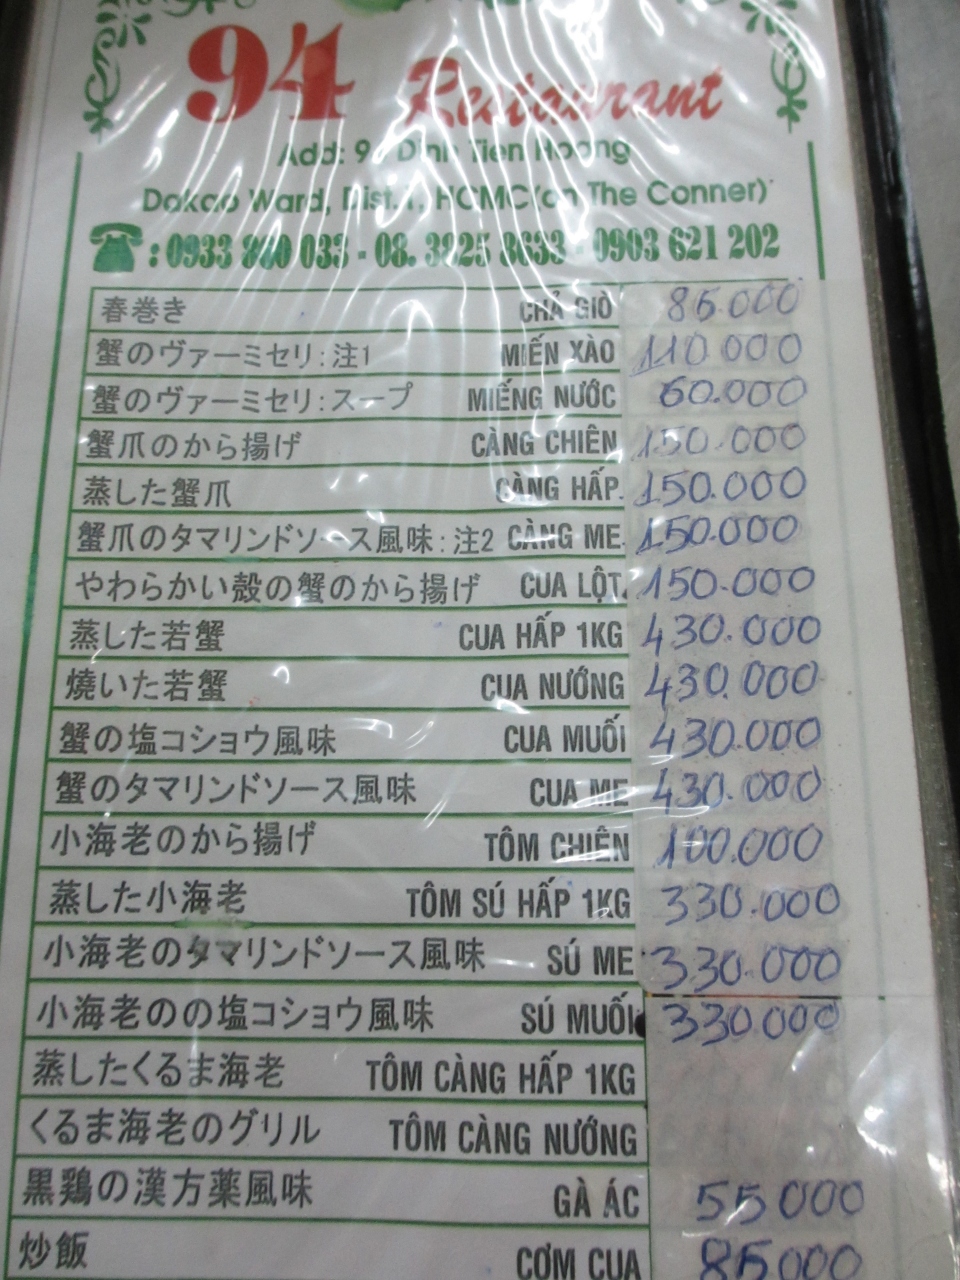 94 Restaurant
Add: 9 Dinh Tien Hoang
Dakao Ward, Dist.1, HCMC(on The Conner)
: 0933 880 033 - 08. 3825 8633 - 0903 621 202
春巻き CHẢ GIÒ 85.000
蟹のヴァーミセリ:注1 MIẾN XÀO 110.000
蟹のヴァーミセリ:スープ MIẾNG NƯỚC 60.000
蟹爪のから揚げ CÀNG CHIÊN 150.000
蒸した蟹爪 CÀNG HẤP 150.000
蟹爪のタマリンドソース風味:注2 CÀNG ME 150.000
やわらかい殻の蟹のから揚げ CUA LỘT 150.000
蒸した若蟹 CUA HẤP 1KG 430.000
燒いた若蟹 CUA NƯỚNG 430.000
蟹の塩コショウ風味 CUA MUỐI 430.000
蟹のタマリンドソース風味 CUA ME 430.000
小海老のから揚げ TÔM CHIÊN 100.000
蒸した小海老 TÔM SÚ HẤP 1KG 330.000
小海老のタマリンドソース風味 SÚ ME 330.000
小海老のの塩コショウ風味 SÚ MUỐI 330.000
蒸したくるま海老 TÔM CÀNG HẤP 1KG
くるま海老のグリル TÔM CÀNG NƯỚNG
黒鶏の漢方薬風味 GÀ ÁC 55000
炒飯 CƠM CUA 85000